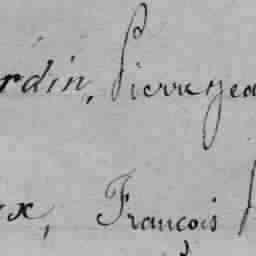 rdin, Pierre Jea
x, François